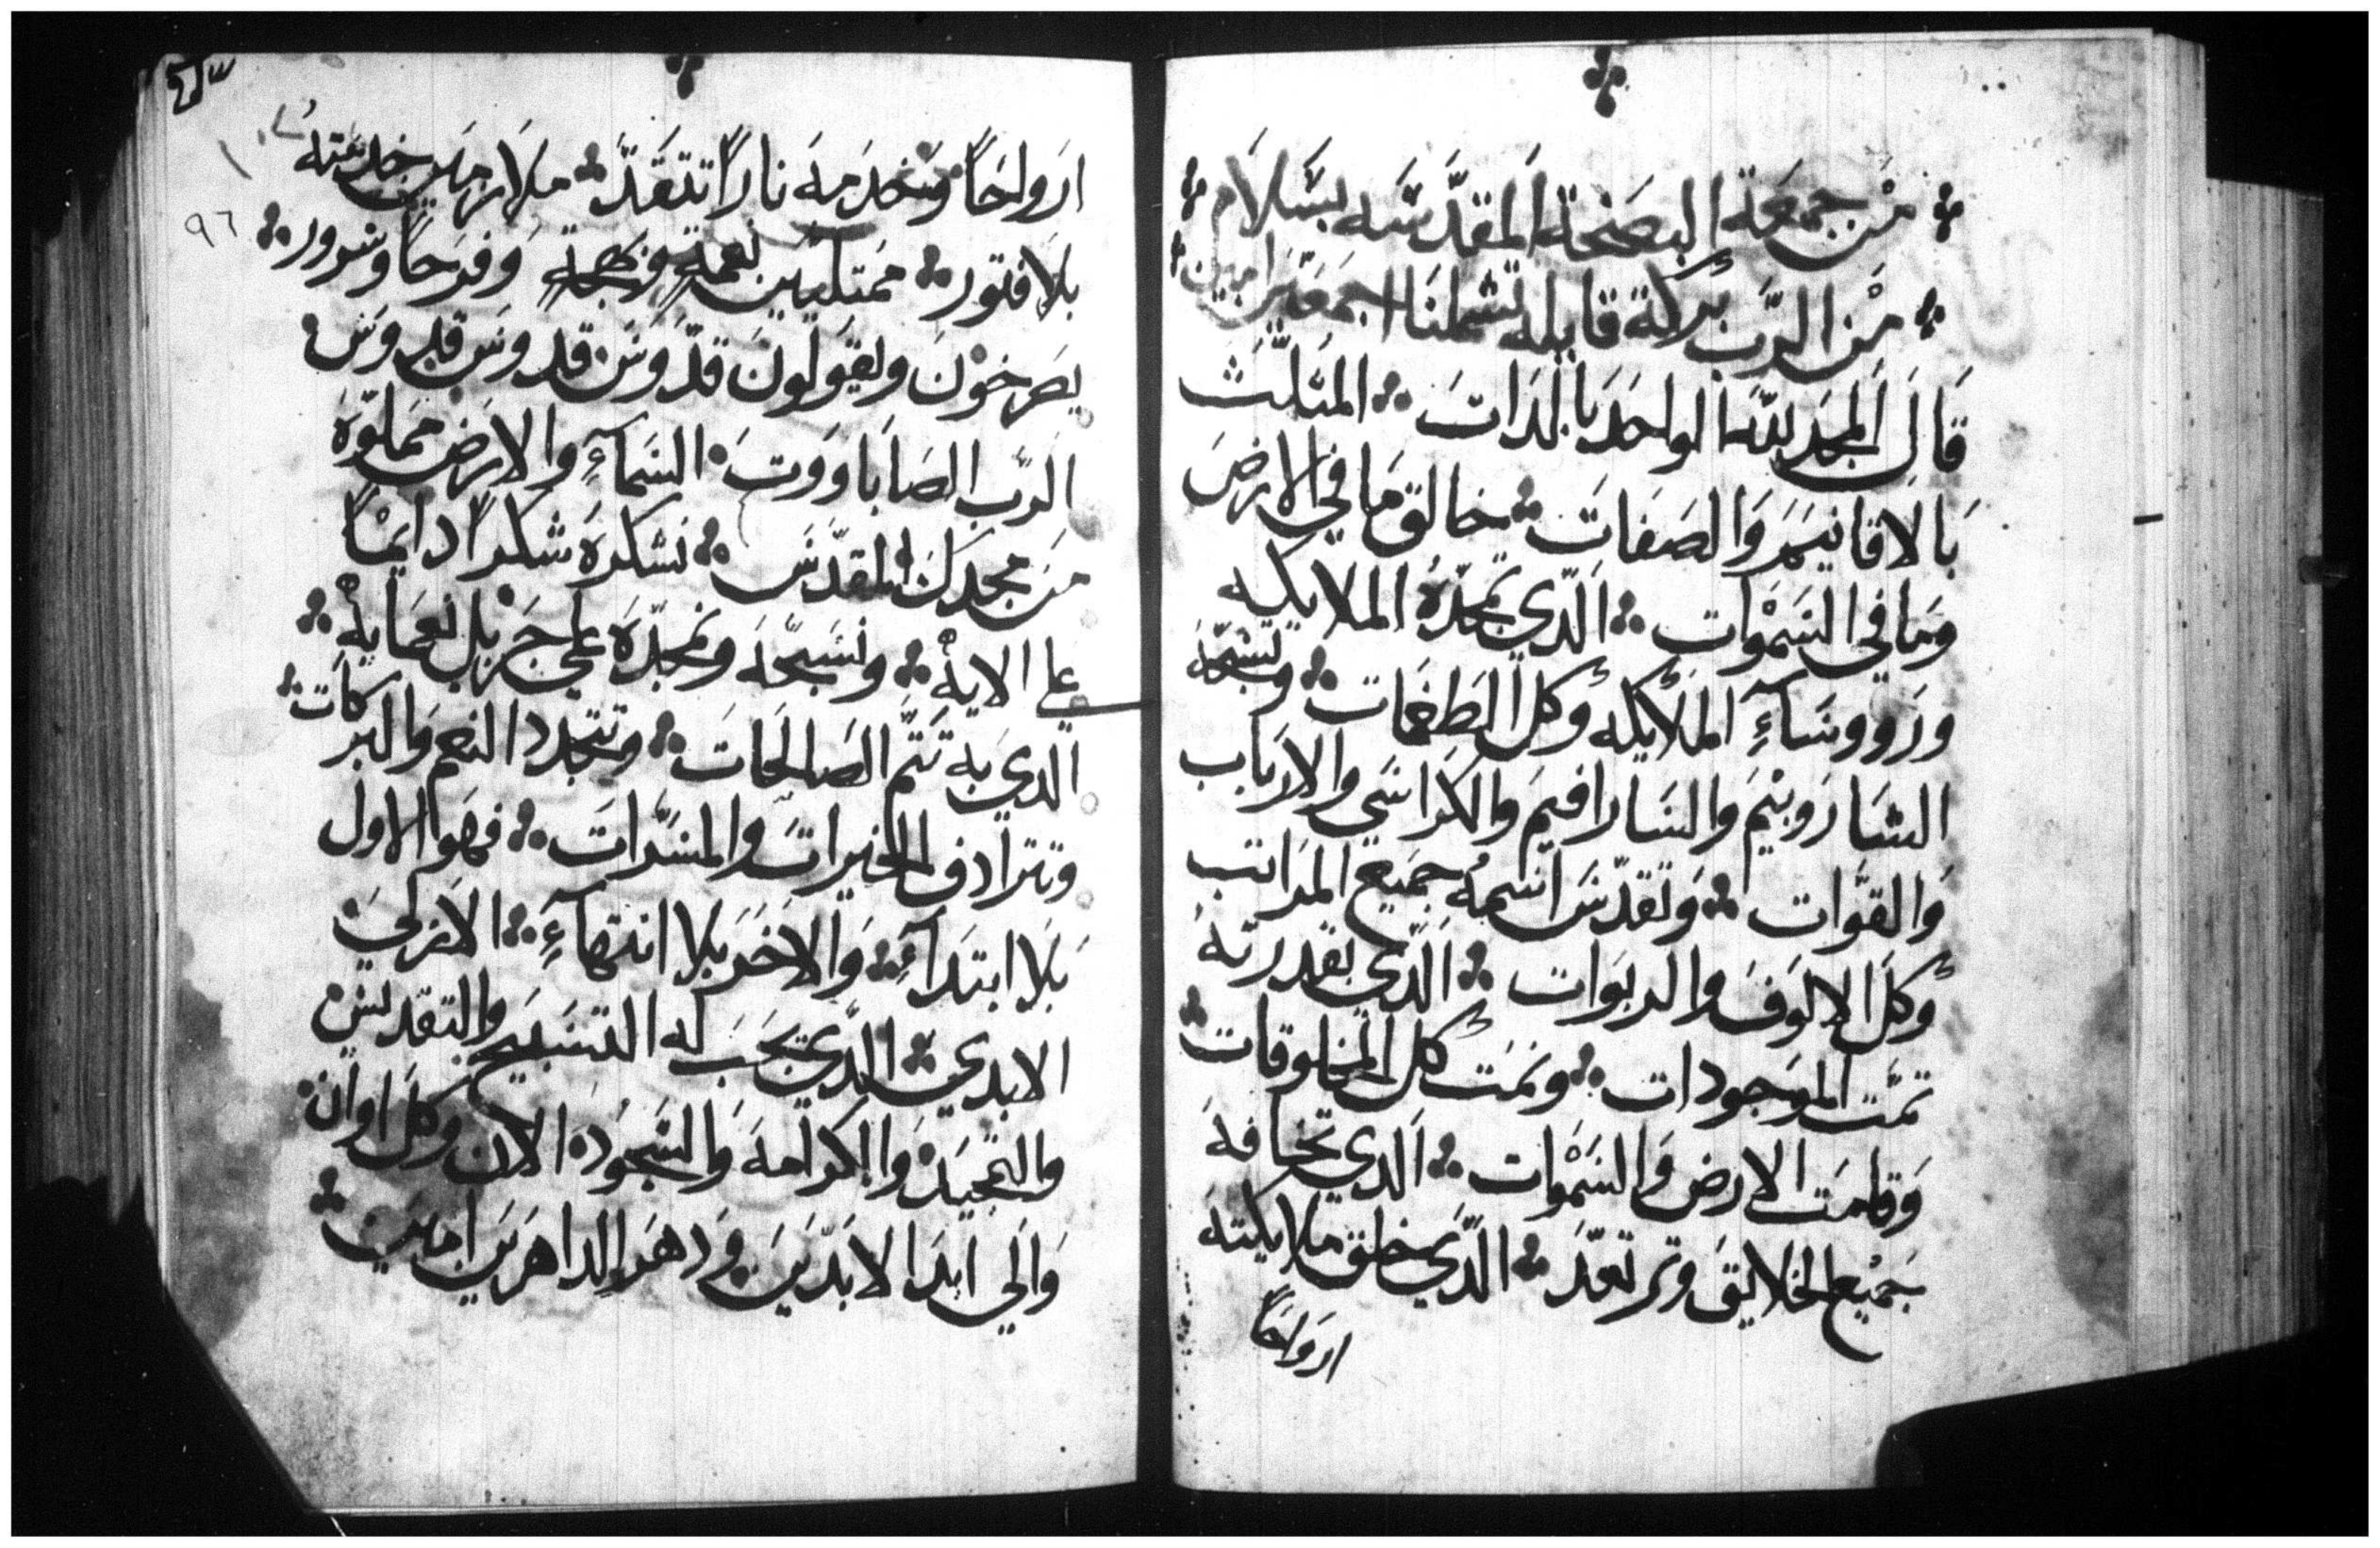 من جمعة البصخة المقدسه بسلام
من الرب بركة قابله تشملنا اجمعين امين
قال المجد لله الواحد بالدات المثلث
بالاقانيم والصفات خالق ما في الارض
وما في السموات الدي تمجده الملايكه
ورووساء الملايكه وكل الطغمات وتسبحه
الشاروبيم والسارافيم والكراسي والارباب
والقوات وتقدس اسمه جميع المراتب
وكل الالوف والربوات الدي بقدرته
تمت الموجودات ونمت كل المخلوقات
وقامت الارض والسموات الدي تخافه
جميع الخلايق وترتعد الدي خلق ملايكته
ارواحا
ارواحا وخدمه نارا تتقد ملازمين خدمته
٩٦
بلا فتور ممتليين نعمة وبهجة وفرحا وسرور
يصرخون ويقولون قدوس قدوس قدوس
الرب الصاباووت السماء والارض مملوة
من مجدك المقدس نشكره شكرا دايما
على الايه ونسبحه ونمجده على جزيل نعمايه
الدي به تتم الصالحات وتتجدد النعم والبركات
وتترادف الخيرات والمسرات فهو الاول
بلا ابتداء والاخر بلا انتهاء الازلي
الابدي الدي يجب له التسبيح والتقديس
والتمجيد والكرامه والسجود الان وكل اوان
والى ابد الابدين ودهر الداهرين امين